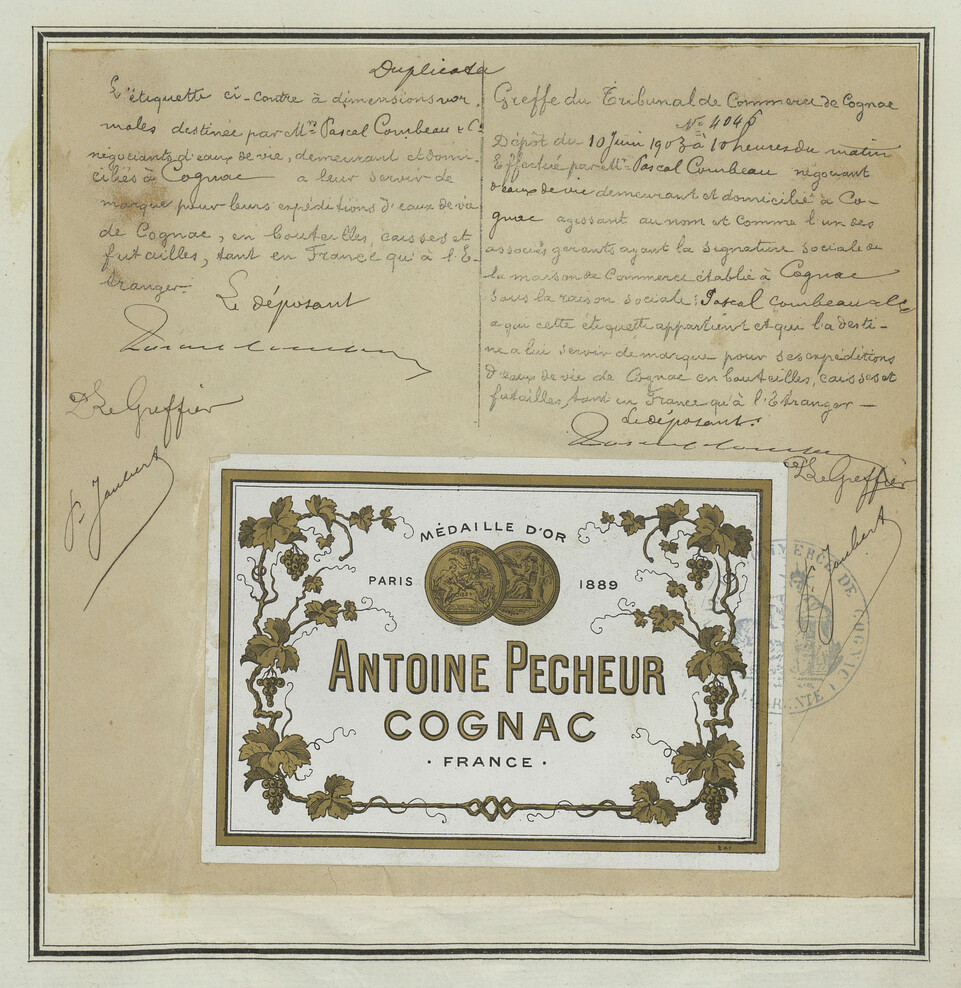 Duplicata
L'étiquette ci-contre à dimensions nor-
males destinée par Mrs Pascal Combeau & Cie
négociants d'eaux de vie, demeurant et domi-
ciliés à Cognac a leur servir de
marque pour leurs expéditions d'eaux de vie
de Cognac, en bouteilles, caisses et
futailles, tant en France qu'à l'E-
tranger.
Le déposant
Le Greffier
Jaubert
Greffe du Tribunal de Commerce de Cognac
No 4046
Dépôt du 10 Juin 1903 à 10 heures du matin
Effectué par Mr Pascal Combeau négociant
d'eaux de vie demeurant et domicilié à Co-
gnac agissant au nom et comme l'un des
associés gérants ayant la signature sociale de
la maison de Commerce établie à Cognac
sous la raison sociale: Pascal Combeau & Cie
a qui cette étiquette appartient et qui l'a desti-
ne a lui servir de marque pour ses expéditions
d'eaux de vie de Cognac en bouteilles, caisses et
futailles, tant en France qu'à l'Etranger —
Le déposant.
Le Greffier
Jaubert
MÉDAILLE D'OR
PARIS 1889
ANTOINE PECHEUR
COGNAC
· FRANCE ·
COMMERCE DE COGNAC